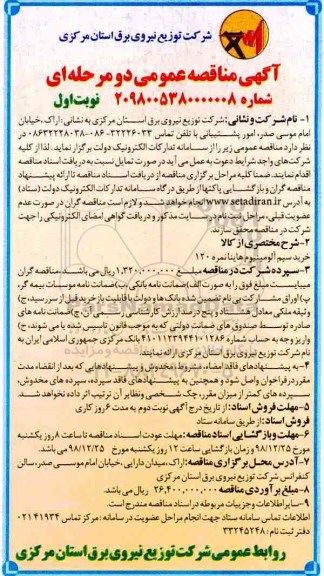 شرکت توزیع نیروی برق استان مرکزی
آگهی مناقصه عمومی دو مرحله ای
شماره ۲۰۹۸۰۰۵۳۸۰۰۰۰۰۰۸ نوبت اول
۱- نام شرکت و نشانی: شرکت توزیع نیروی برق استان مرکزی به نشانی: اراک، خیابان
امام موسی صدر، امور پشتیبانی با تلفن تماس ۳۲۲۲۶۰۳۳-۰۸۶ ۰۸۶۳۲۲۲۸۰۳۸ در
نظر دارد مناقصه عمومی زیر را از سامانه تدارکات الکترونیک دولت برگزار نماید. لذا از کلیه
شرکت های واجد شرایط دعوت به عمل می آید در صورت تمایل نسبت به دریافت اسناد مناقصه
اقدام نمایند. ضمنا کلیه مراحل برگزاری مناقصه از دریافت اسناد مناقصه تا ارائه پیشنهاد
مناقصه گران و بازگشایی پاکتها از طریق درگاه سامانه تدارکات الکترونیک دولت (ستاد)
به آدرس www.setadiran.ir انجام خواهد شد و لازم است مناقصه گران در صورت عدم
عضویت قبلی، مراحل ثبت نام در سایت مذکور و دریافت گواهی امضای الکترونیکی را جهت
شرکت در مناقصه محقق سازند.
۲- شرح مختصری از کالا
خرید سیم آلومینیوم هاینا نمره ۱۲۰
۳- سپرده شرکت در مناقصه مبلغ ۱,۳۲۰,۰۰۰,۰۰۰ ریال می باشد. مناقصه گران
میبایست مبلغ فوق را به صورت الف) ضمانت نامه بانکی ب) ضمانت نامه موسسات بیمه گر،
پ) اوراق مشارکت بی نام تضمین شده بانک ها و دولت با قابلیت باز خرید قبل از سررسید، ج)
وثیقه ملکی معادل هشتاد و پنج درصد ارزش کارشناسی رسمی آن، چ) ضمانت نامه های
صادره توسط صندوق های ضمانت دولتی که به موجب قانون تاسیس شده یا می شوند، ح)
واریز وجه به حساب شماره ۴۱۰۱۱۲۳۹۴۴۱۰۱۲۸۶ بانک مرکزی جمهوری اسلامی ایران به
نام شرکت توزیع نیروی برق استان مرکزی ارائه نمایند.
۴- به پیشنهادهای فاقد امضاء، مشروط، مخدوش و پیشنهادهایی که بعد از انقضاء مدت
مقرر در فراخوان واصل شود و همچنین به پیشنهادهای فاقد سپرده، سپرده های مخدوش،
سپرده های کمتر از میزان مقرر، چک شخصی و نظایر آن ترتیب اثر داده نخواهد شد.
۵- مهلت فروش اسناد: از تاریخ درج آگهی نوبت دوم به مدت ۶ روز کاری
فروش اسناد: از طریق سامانه ستاد
۶- مهلت و بازگشایی اسناد مناقصه: مهلت عودت اسناد مناقصه تا ساعت ۸ روز یکشنبه
مورخ ۹۸/۱۲/۲۵ و زمان بازگشایی ساعت ۱۲ روز یکشنبه مورخ ۹۸/۱۲/۲۵ می باشد.
۷- آدرس محل برگزاری مناقصه: اراک، میدان دارایی، خیابان امام موسی صدر، سالن
کنفرانس شرکت توزیع نیروی برق استان مرکزی
۸- مبلغ برآوردی مناقصه ۲۶,۴۰۰,۰۰۰,۰۰۰ ریال می باشد.
۹- سایر اطلاعات و جزییات مربوطه در اسناد مناقصه مندرج است.
اطلاعات تماس سامانه ستاد جهت انجام مراحل عضویت در سامانه: مرکز تماس ۰۲۱۴۱۹۳۴
دفتر ثبت نام: ۳۳۲۴۵۲۴۸
روابط عمومی شرکت توزیع نیروی برق استان مرکزی